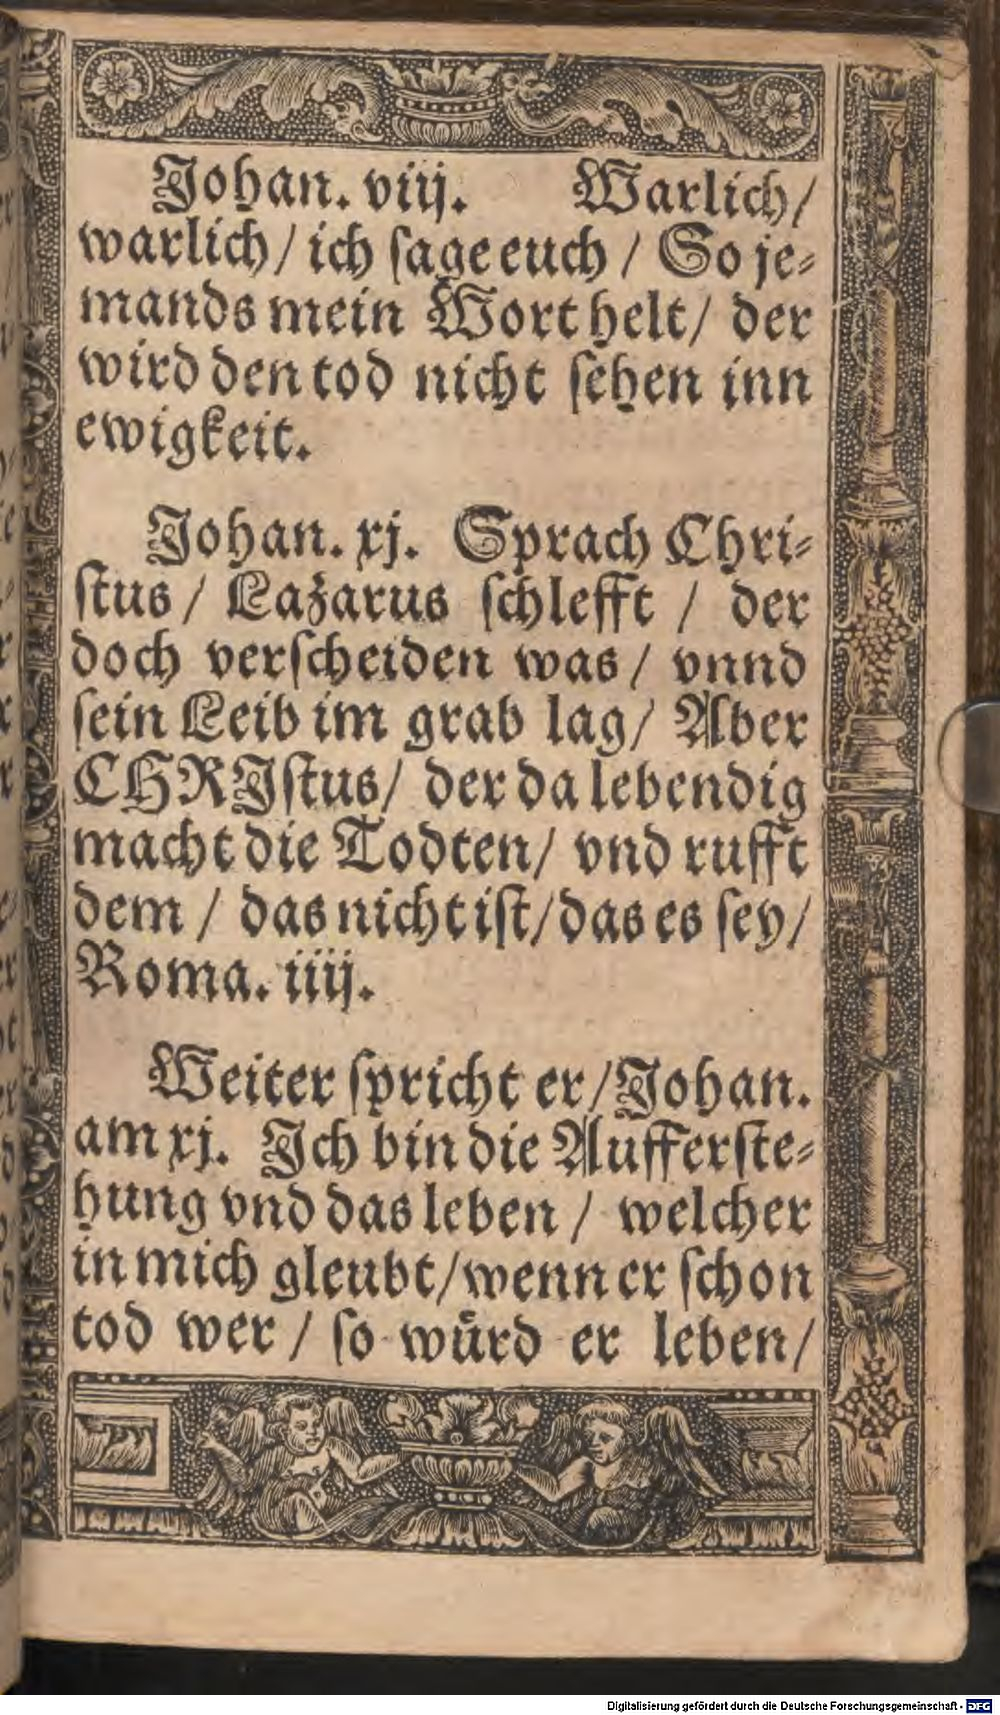 Johan. viij. Warlich/
warlich/ ich ſage euch / So je⸗
mands mein Wort helt/ der
wird den tod nicht ſehen inn
ewigkeit.
Johan. xj. Sprach Chri⸗
ſtus / Lazarus ſchlefft / der
doch verſcheiden was / vnnd
ſein Leib im grab lag/ Aber
CHRIſtus/ der da lebendig
macht die Todten/ vnd rufft
dem / das nicht iſt/das es ſey/
Roma. iiij.
Weiter ſpricht er/Johan.
am xj. Ich bin die Aufferſte⸗
hung vnd das leben / welcher
in mich gleubt/wenn er ſchon
tod wer / ſo wuͤrd er leben/
Digitalisierung gefördert durch die Deutsche Forschungsgemeinschaft - DFG